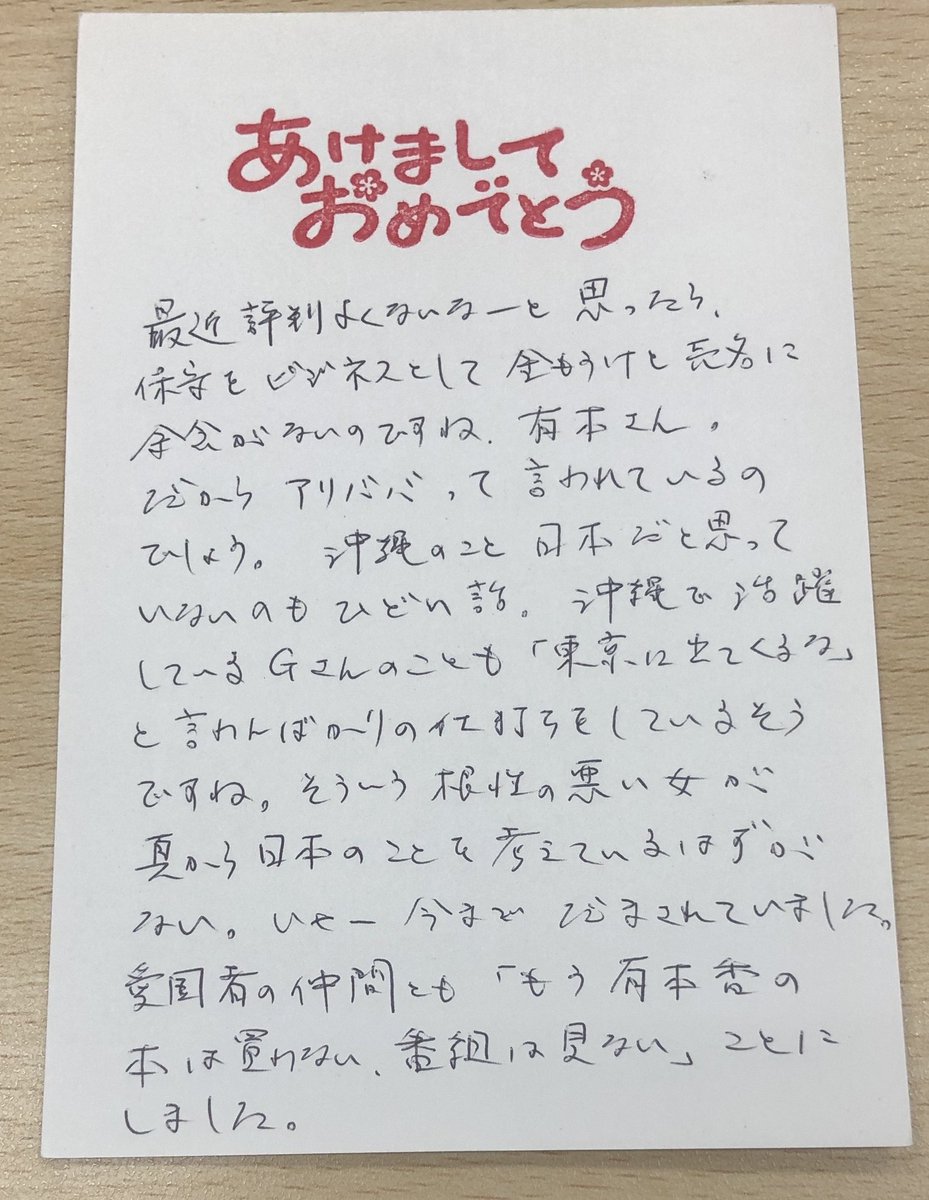 あけまして
おめでとう
最近評判よくないなーと思ったら、
保守をビジネスとして金もうけと売名に
余念がないのですね、有本さん。
だからアリババって言われているの
でしょう。 沖縄のこと日本だと思って
いないのもひどい話。 沖縄で活躍
しているGさんのことも「東京に出てくるな」
と言わんばかりの仕打ちをしているそう
ですね。そういう根性の悪い女が
真から日本のことを考えているはずが
ない。いやー今までだまされていました。
愛国者の仲間とも「もう有本香の
本は買わない、番組は見ない」ことに
しました。